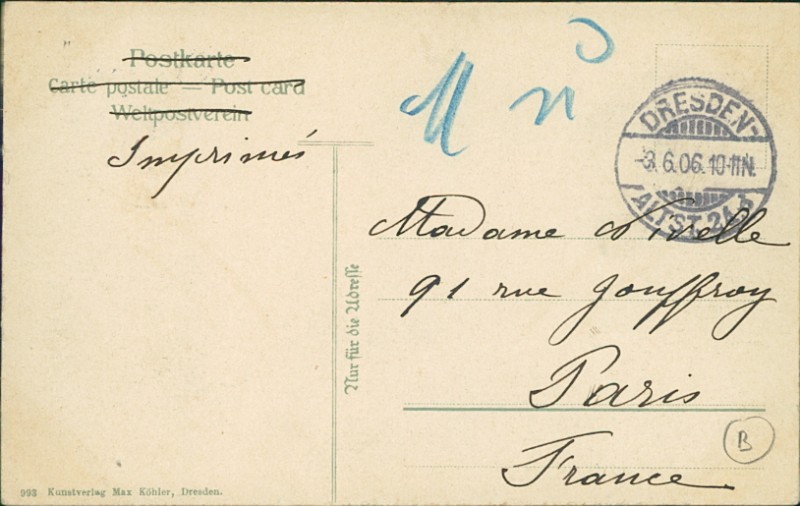 Postkarte
Carte postale — Post card
Weltpostverein
Imprimés
DRESDEN-
-3.6.06.10-11N.
ALTST. 24
Madame Nivelle
91 rue Jouffroy
Paris
France
Nur für die Adresse
B
993 Kunstverlag Max Köhler, Dresden.